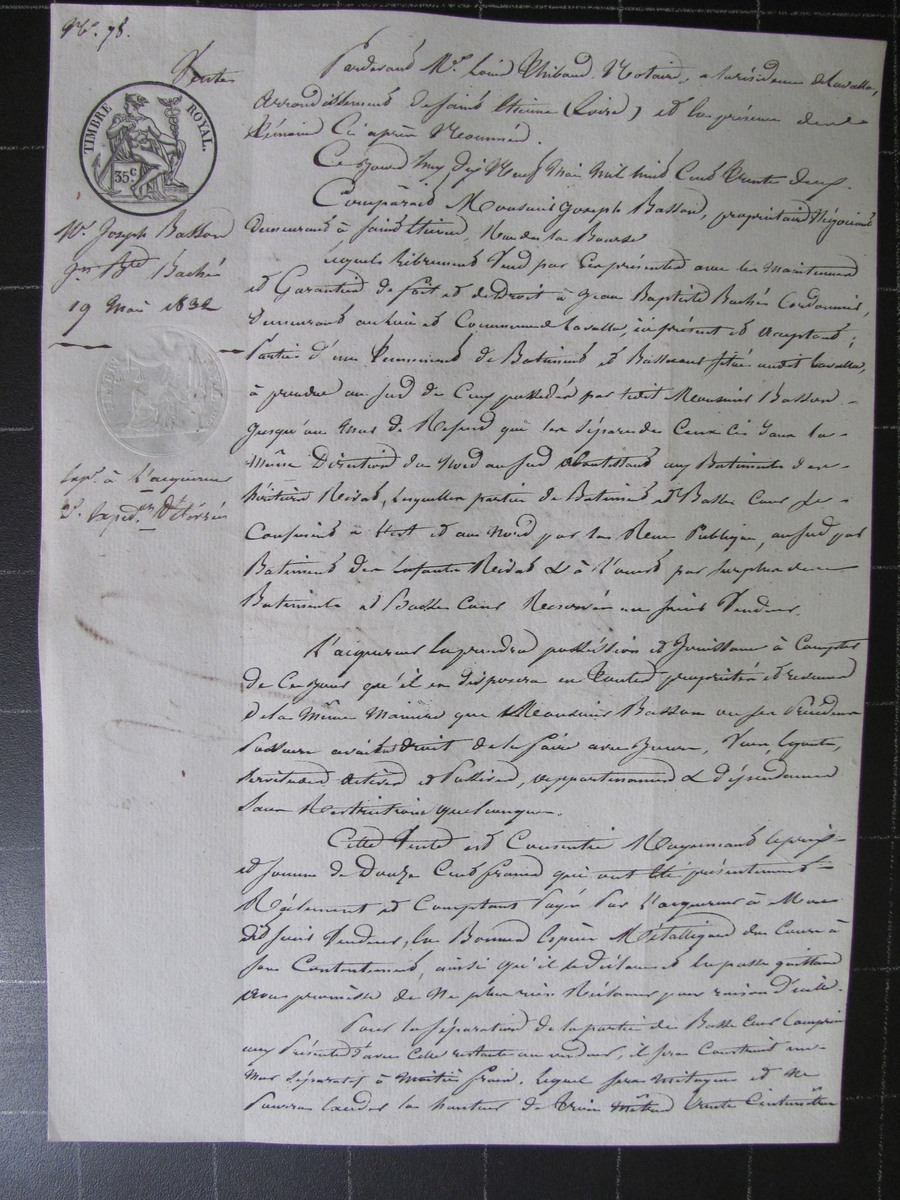 N°. 78.
Vente
TIMBRE ROYAL.
35 c
Mr. Joseph Basson
Jn Bte Baché
19 Mai 1832
Exp. à l'aiquereur
Pardevant Me. Louis Thibaud Notaire, a la résidence de Lavalla,
arrondissement de saint Etienne (Loire) et en présence de
témoins Ci après Nommés.
Ce jourd'huy dix Neuf Mai mil huit Cent trente deux.
Comparait Monsieur Joseph Basson, propriétaire Négociant
demeurant à saint Etienne, Rue de la Bourse
Lequel librement Vend par Ces présentes avec les Maintenues
et Garanties de fait et de Droit à Jean Baptiste Baché Cordonnier,
demeurant au lieu et Commune de Lavalla, ici présent et acceptant;
Partie d'un Tennement de Batiment et Bassecour situé audit Lavalla,
à prendre au sud de Ceux possédés par ledit Monsieur Basson
Jusqu'au Mur de Refend qui les sépare de Ceux Ci dans la
Même Direction du Nord au sud aboutissant aux Batiments des
héritiers Rivat, Lesquelles partie de Batiment et Basse Cour se
Confinent à l'est et au Nord par la Rue Publique, au sud par
Batiment des Enfants Rivat & à l'ouest par surplus de
Batiments et Basse Cour Réservés au sieur Vendeur.
L'aiquereur En prendra possession et Jouissance à Compter
de Ce Jour qu'il en disposera en toutes propriétés et revenus
de la Même Manière que Monsieur Basson ou ses Vendeurs
Passés avaient droit de le faire avec Jours, Vues, Egouts,
servitudes actives et Passives, appartenances & dépendances
sans Restrictions quelconques.
Cette Vente est Consentie Moyennant le prix
et somme de Douze Cent francs qui ont été présentement
Réellement et Comptant Payés Par l'acquereur à
dit sieur Vendeur, En Bonnes Espèces Métalliques du Cours à
son Contentement, ainsi qu'il le déclare et en passe quittance
avec promesse de Ne plus rien Réclamer pour raison d'icelle.
Pour la séparation de la partie de Basse Cour Comprise
aux Présentes d'avec Celle restante au vendeur, il sera Construit un
Mur séparatif à Moitié frais, lequel sera Mitoyen et Ne
Pourra Excéder la hauteur de trois Mêtres trente Centimêtres